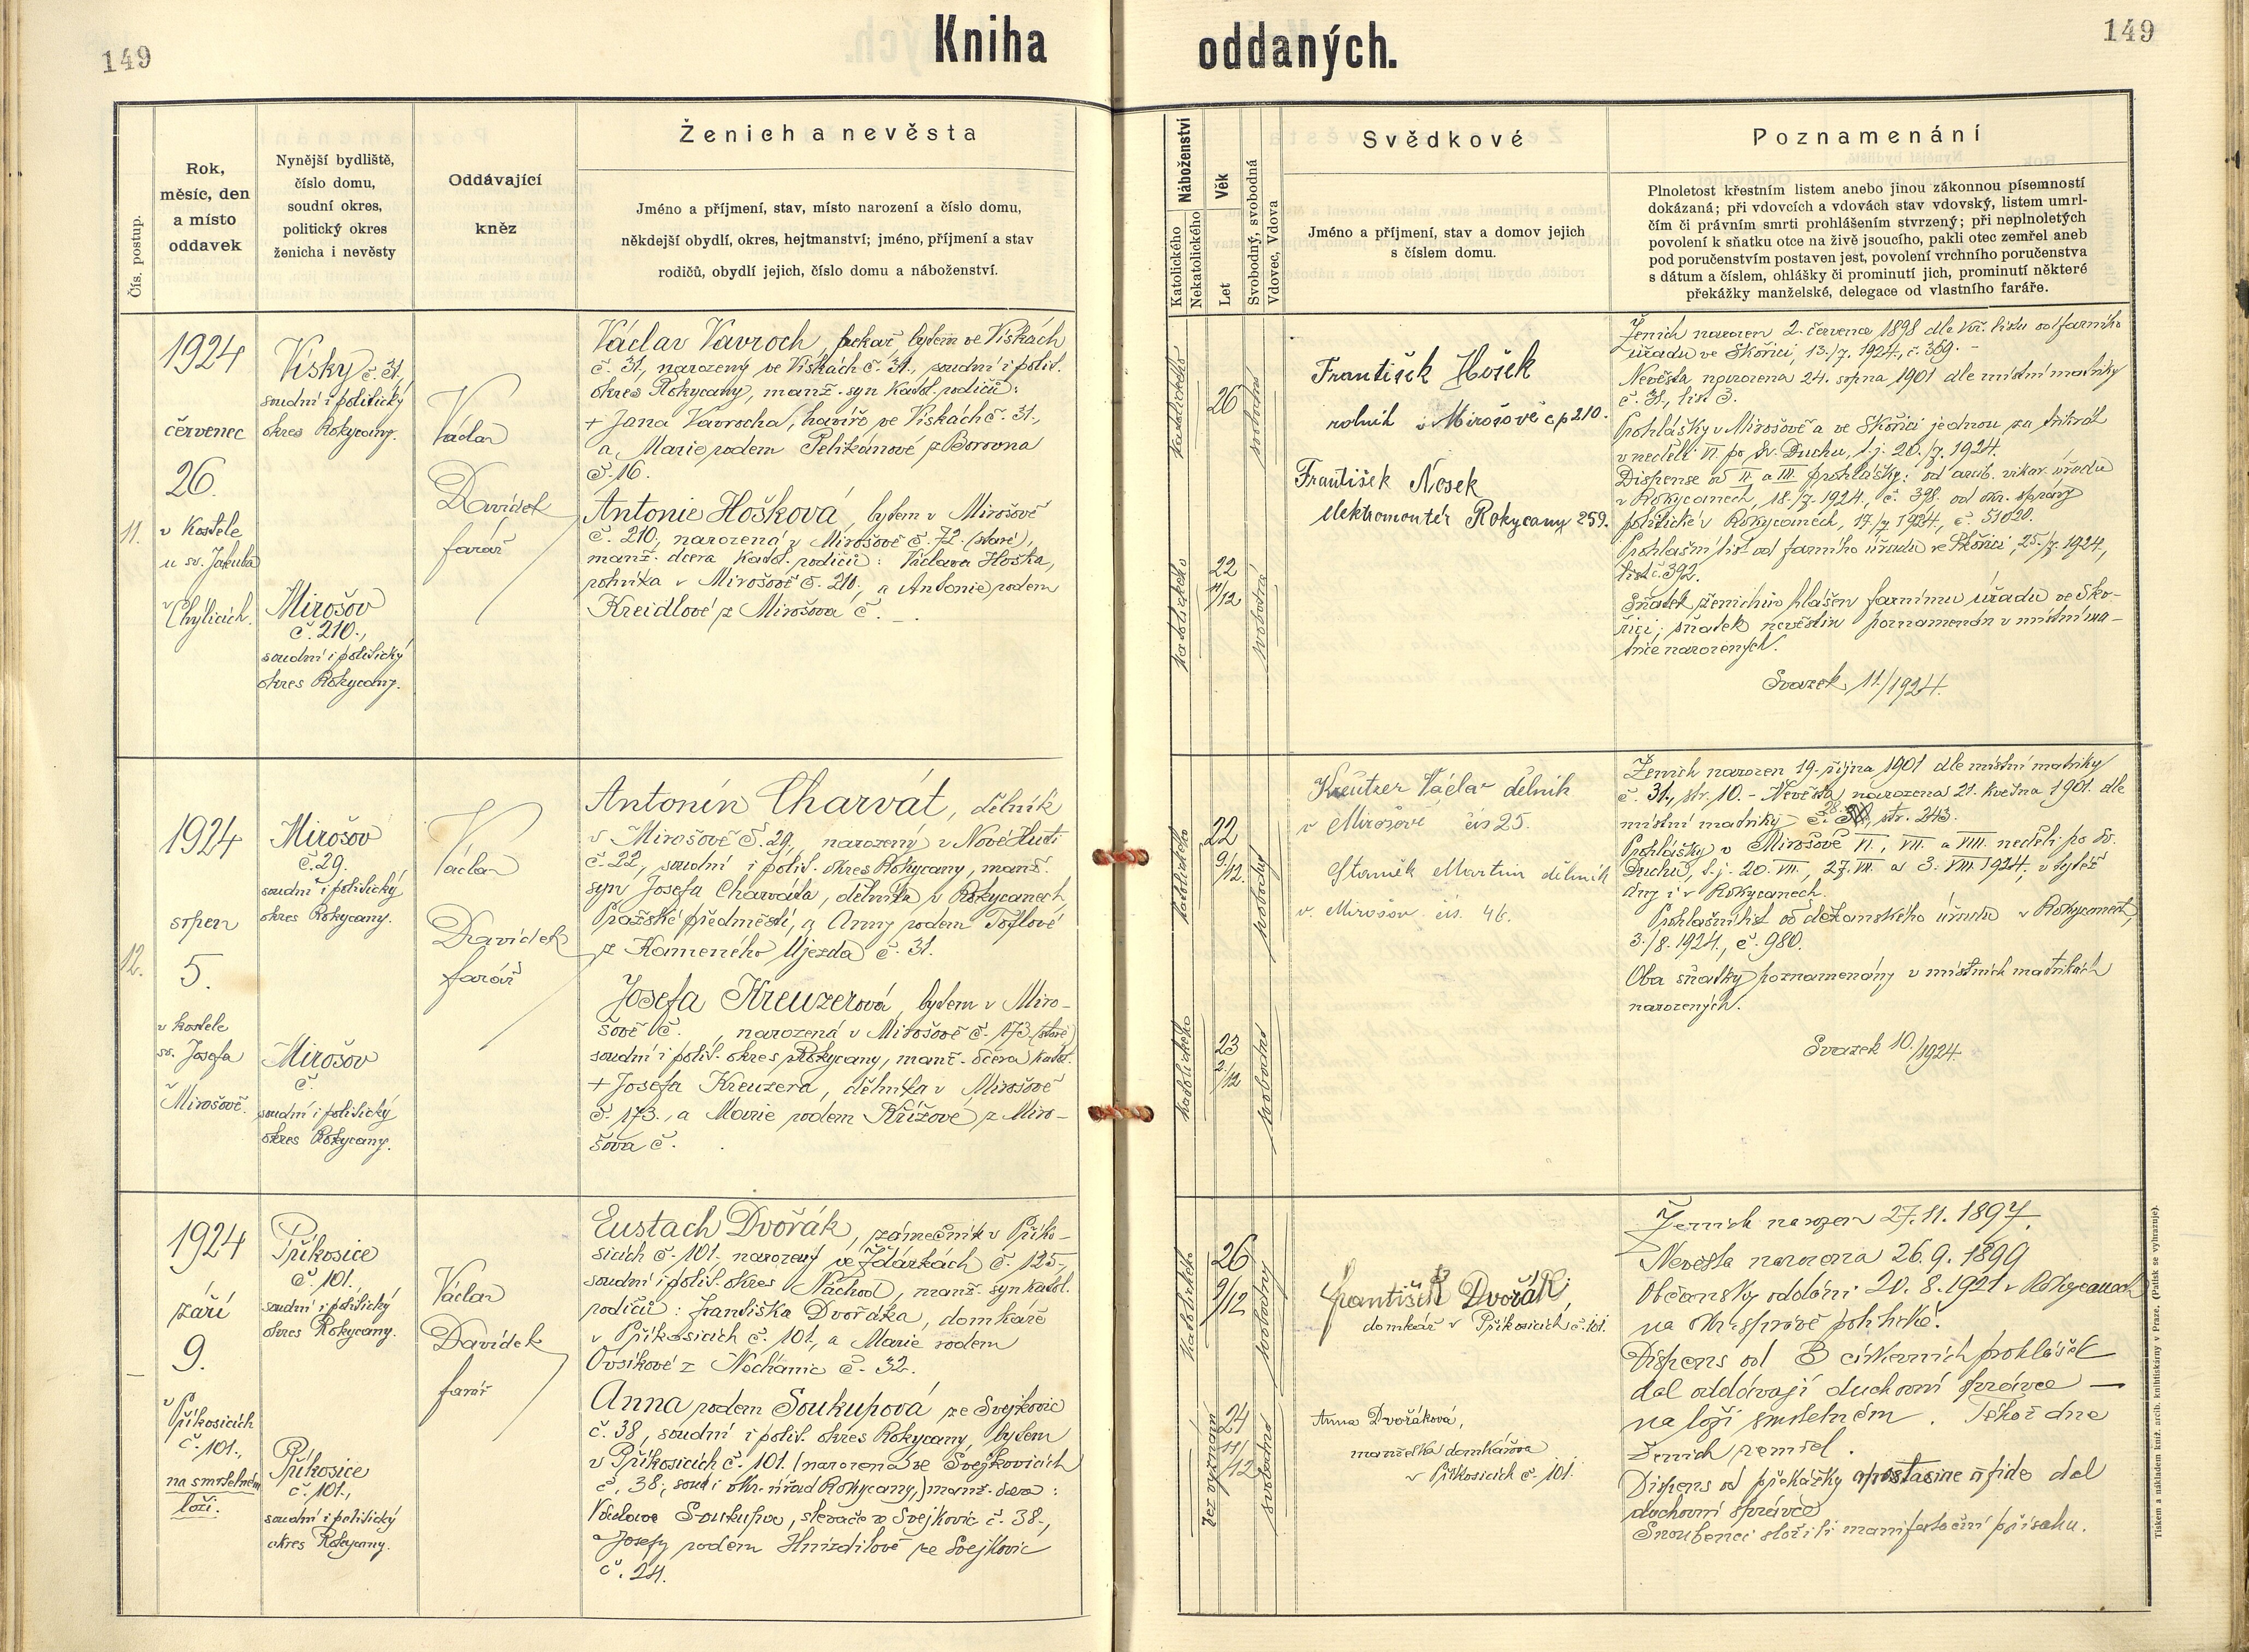 149
Kniha
oddaných.
149
Čís. postup.
Rok,
měsíc, den
a místo
oddavek
Nynější bydliště,
číslo domu,
soudní okres,
politický okres
ženicha i nevěsty
Oddávající
kněz
Ženich a nevěsta
Jméno a příjmení, stav, místo narození a číslo domu,
někdejší obydlí, okres, hejtmanství; jméno, příjmení a stav
rodičů, obydlí jejich, číslo domu a náboženství.
Náboženství
Katolického
Nekatolického
Věk
Let
Svobodný, svobodná
Vdovec, Vdova
Svědkové
Jméno a příjmení, stav a domov jejich
s číslem domu.
Poznamenání
Plnoletost křestním listem anebo jinou zákonnou písemností
dokázaná; při vdovcích a vdovách stav vdovský, listem umrl-
čím či právním smrti prohlášením stvrzený; při neplnoletých
povolení k sňatku otce na živě jsoucího, pakli otec zemřel aneb
pod poručenstvím postaven jest, povolení vrchního poručenstva
s dátum a číslem, ohlášky či prominutí jich, prominutí některé
překážky manželské, delegace od vlastního faráře.
11.
1924
červenec
26.
v kostele
u sv. Jakuba
v Chylicích.
Vísky č. 31.
soudní i politický
okres Rokycany.
Mirošov
č. 210.,
soudní i politický
okres Rokycany.
Václav
Davídek
farář
Václav Vavroch, pekař bytem ve Vískách
č. 31., narozený ve Vískách č. 31., soudní i polit.
okres Rokycany, manž. syn katol. rodičů:
+ Jana Vavrocha, havíře ve Vískách č. 31.,
a Marie rodem Pelikánové z Borovna
č. 16.
Antonie Hošková, bytem v Mirošově
č. 210., narozená v Mirošově č. 72. (staré),
manž. dcera katol. rodičů: Václava Hoška,
rolníka v Mirošově č. 210., a Antonie rodem
Kreidlové z Mirošova č. –.
katolického
26
svobodný
katolického
22
11/12
svobodná
František Hošek
rolník v Mirošově čp 210.
František Nosek
elektromontér Rokycany 259.
Ženich narozen 2. července 1898 dle kř. listu od farního
úřadu ve Skořici, 13./7. 1924., č. 369. –
Nevěsta narozena 24. srpna 1901 dle místní matriky
č. 31., list 3.
Prohlášky v Mirošově a ve Skořici jednou za třikrát
v neděli VI. po sv. Duchu, t. j. 20./7. 1924.
Dispense od II. a III. prohlášky: od arcib. vikar. úřadu
v Rokycanech, 18./7. 1924., č. 398. od okr. správy
politické v Rokycanech, 17./7. 1924., č. 51020.
Prohlašní list od farního úřadu ve Skořici, 25./7. 1924.,
list č. 392.
Sňatek ženichův hlášen farnímu úřadu ve Sko-
řici; sňatek nevěstin poznamenán v místní ma-
trice narozených.
Svazek 11./1924.
12.
1924
srpen
5.
v kostele
sv. Josefa
v Mirošově.
Mirošov
č. 29.
soudní i politický
okres Rokycany.
Mirošov
č.
soudní i politický
okres Rokycany.
Václav
Davídek
farář
Antonín Charvát, dělník
v Mirošově č. 29., narozený v Nové Huti
č. 22., soudní i polit. okres Rokycany, manž.
syn Josefa Charváta, dělníka v Rokycanech,
Pražské předměstí, a Anny rodem
z Kamenného Újezda č. 31.
Josefa Kreuzerová, bytem v Miro-
šově č. , narozená v Mirošově č. 173 (staré)
soudní i polit. okres Rokycany, manž. dcera katol.
+ Josefa Kreuzera, dělníka v Mirošově
č. 173., a Marie rodem Křížové z Miro-
šova č. .
katolického
22
9/12.
svobodný
katolického
23
2/12
svobodná
Kreutzer Václav dělník
v Mirošově čís 25.
Staněk Martin dělník
v. Mirošov čís. 46.
Ženich narozen 19. října 1901 dle místní matriky
č. 31., str. 10. – Nevěsta narozena 21. května 1901. dle
místní matriky č. 28., str. 243.
Prohlášky v Mirošově VI., VII. a VIII. neděli po sv.
Duchu, t. j. 20. VII., 27. VII. a 3. VIII. 1924., v tytéž
dny i v Rokycanech.
Prohlašní list od děkanského úřadu v Rokycanech,
3./8. 1924., č. 980.
Oba sňatky poznamenány v místních matrikách
narozených.
Svazek 10./1924.
–
1924
září
9.
v Příkosicích
č. 101.,
na smrtelném
loži.
Příkosice
č. 101.
soudní i politický
okres Rokycany.
Příkosice
č. 101.,
soudní i politický
okres Rokycany.
Václav
Davídek
farář
Eustach Dvořák, zámečník v Příko-
sicích č. 101. narozený ve Žďárkách č. 125.,
soudní i polit. okres Náchod, manž. syn katol.
rodičů: Františka Dvořáka, domkáře
v Příkosicích č. 101., a Marie rodem
Ovsíkové z č. 32.
Anna rodem Soukupová ze Svejkovic
č. 38, soudní i polit. okres Rokycany, bytem
v Příkosicích č. 101. (narozena ve Svejkovicích
č. 38; soud i okr. úřad Rokycany,) manž. dcera:
Václava Soukupa, slevače ze Svejkovic č. 38.,
a Josefy rodem Hnízdilové ze Svejkovic
č. 24.
katolického
26
9/12
svobodný
bez vyznání
24
11/12
svobodná
František Dvořák,
domkář v Příkosicích č. 101.
Anna Dvořáková,
manželka domkářova
v Příkosicích č. 101.
Ženich narozen 27. 11. 1897.
Nevěsta narozena 26. 9. 1899
Občansky oddáni 20. 8. 1921 v Rokycanech
na okr. správě politické.
Dispens od 3 církevních prohlášek
dal oddávají duchovní správce —
na loži smrtelném. Téhož dne
ženich zemřel.
Dispens od překážky apostasiae a fide dal
duchovní správce
Snoubenci složili manifestační přísahu.
Tiskem a nákladem kníž. arcib. knihtiskárny v Praze. (Patisk se vyhrazuje).